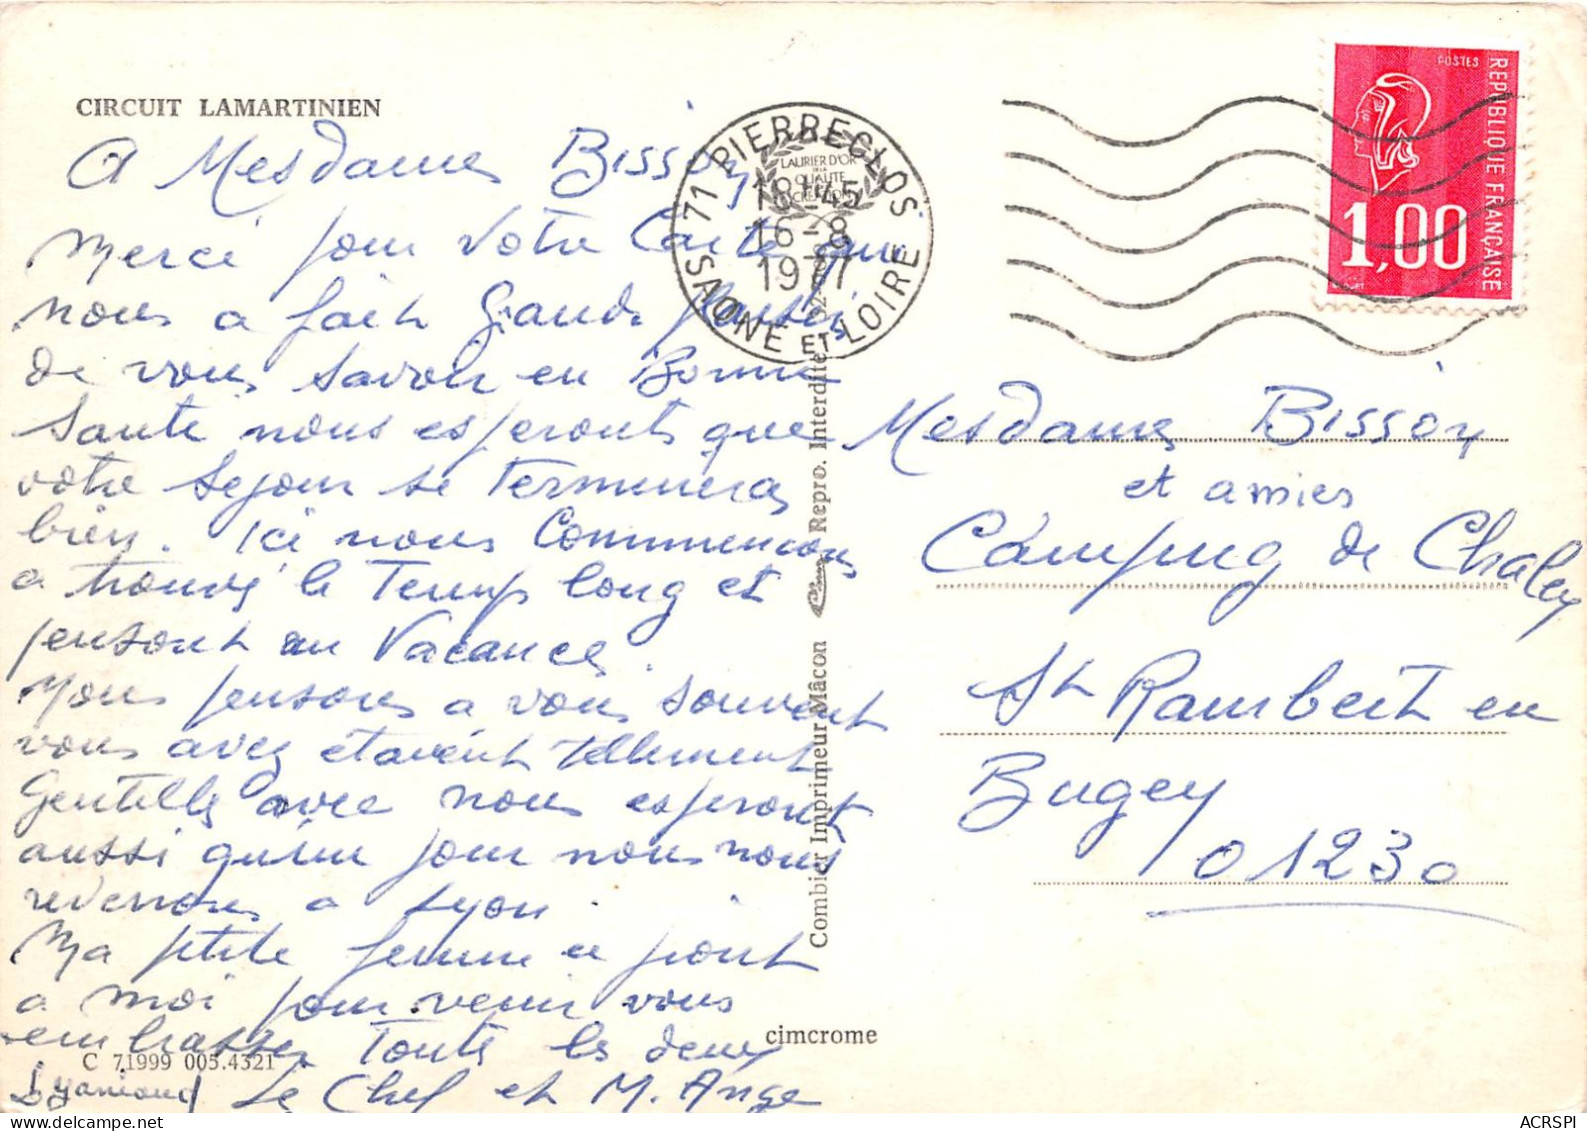 CIRCUIT LAMARTINIEN
A Mesdames Bisson
Merci pour votre Carte qui
nous a fait Grande plaisir
de vous savoir en Bonne
Santé nous esperonts que
votre sejour se termineras
bien. Ici nous Commencons
a trouvé le temps long et
pensont au Vacances.
Nous pensons a vous souvent
vous avez étaient tellement
Gentilles avec nous esperont
aussi qu'un jour nous nous
reverrons a Lyon.
Ma ptite femme ce joint
a moi pour venir vous
embrasser Toute les deux
Le Chef et M. Ange
C 71999 005.4321
cimcrome
Combier Imprimeur Mâcon
Repro. Interdite
71 PIERRECLOS
SAONE ET LOIRE
LAURIER D'OR
DE LA
QUALITE
CREATION
18H45
16-8
1977
POSTES
REPUBLIQUE FRANÇAISE
1,00
Mesdames Bisson
et amies
Camping de Chaley
St Rambert en
Bugey
01230
ACRSPI